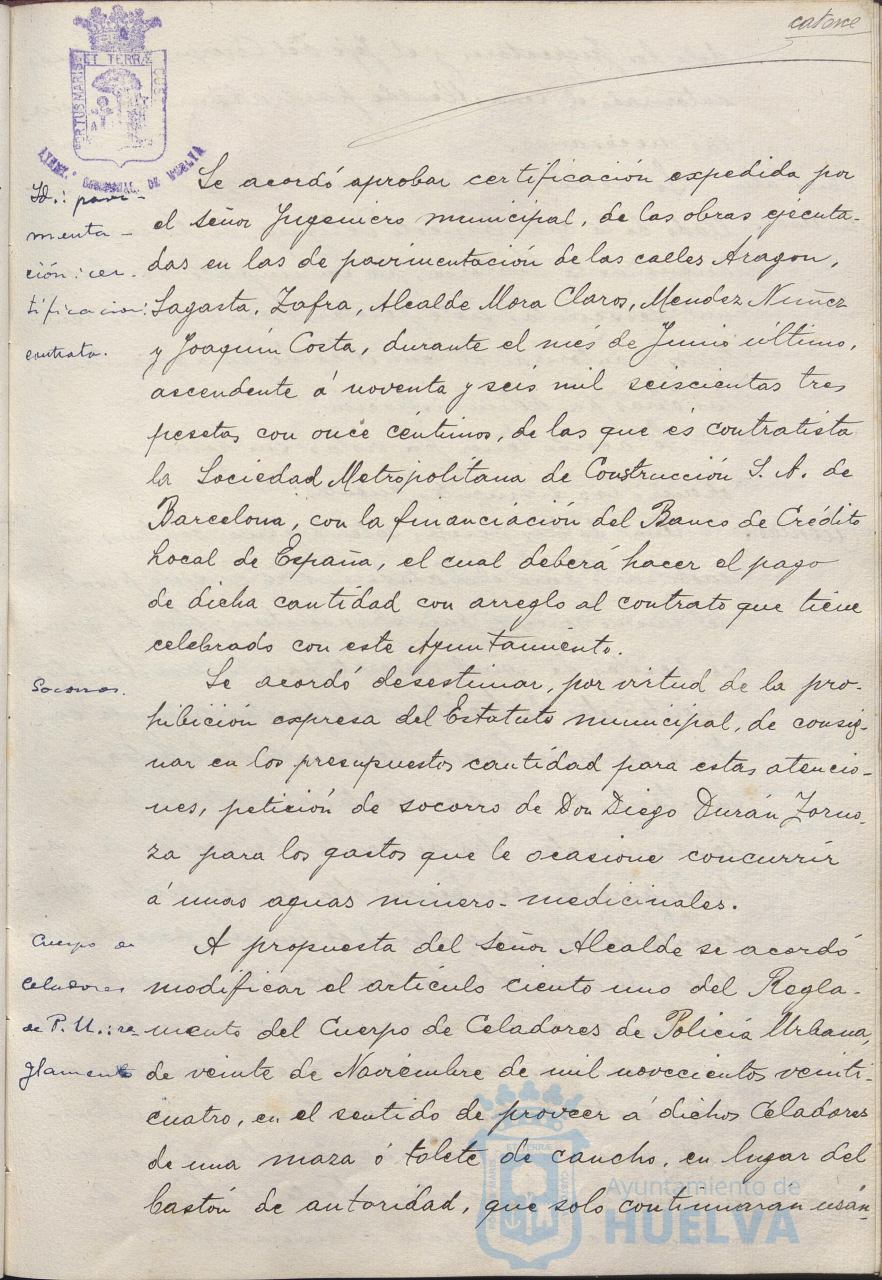 catorce
PORTUS MARIS ET TERRÆ CUSTO
AYUNT.º CONSTITUCIONAL DE HUELVA
Se acordó aprobar certificación expedida por
el señor Ingeniero municipal, de las obras ejecuta-
das en las de pavimentación de las calles Aragon,
Sagasta, Zafra, Alcalde Mora Claros, Mendez Nuñez
y Joaquín Costa, durante el més de Junio último,
ascendente á noventa y seis mil seiscientas tres
pesetas con once céntimos, de las que és contratista
la Sociedad Metropolitana de Construcción S. A. de
Barcelona, con la financiación del Banco de Crédito
Local de España, el cual deberá hacer el pago
de dicha cantidad con arreglo al contrato que tiene
celebrado con este Ayuntamiento.
Id.: pavi-
menta-
ción: cer-
tificacion:
contrata.
Se acordó desestimar, por virtud de la pro-
hibición expresa del Estatuto municipal, de consig-
nar en los presupuestos cantidad para estas atencio-
nes, petición de socorro de Don Diego Durán Zorno-
za para los gastos que le ocasione concurrir
á unas aguas minero-medicinales.
Socorros.
A propuesta del señor Alcalde se acordó
modificar el artículo ciento uno del Regla-
mento del Cuerpo de Celadores de Policía Urbana,
de veinte de Noviembre de mil novecientos veinti-
cuatro, en el sentido de proveer á dichos Celadores
de una maza ó tolete de caucho, en lugar del
bastón de autoridad, que solo continuaran usán-
Cuerpo de
Celadores
de P. U.: re-
glamento
Ayuntamiento de
HUELVA